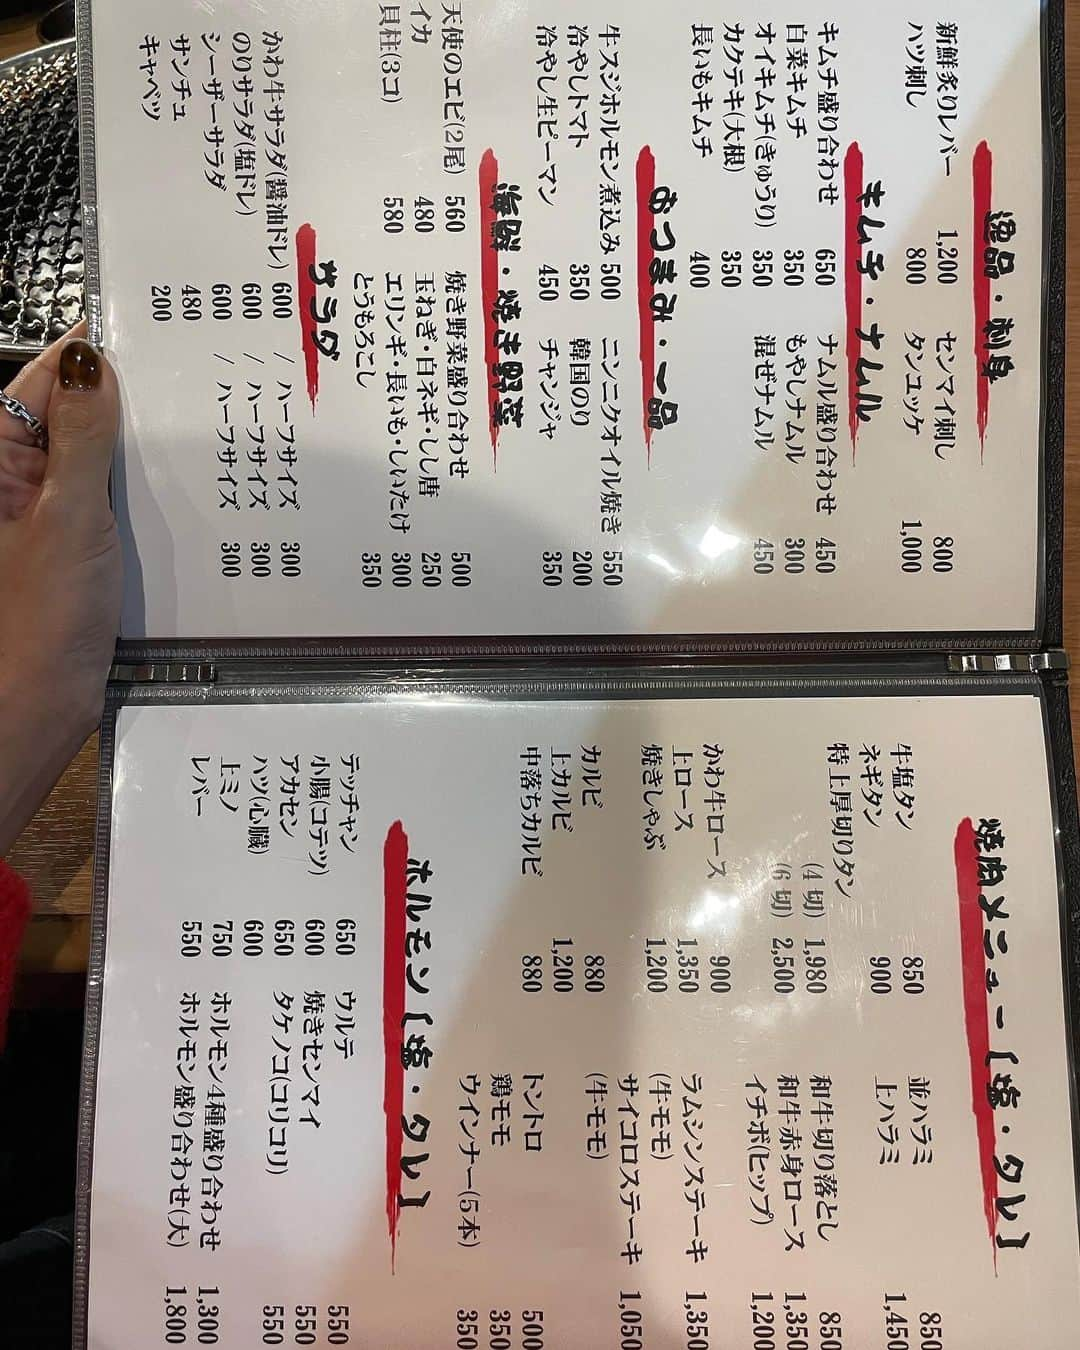 逸品・刺身
新鮮炙りレバー 1,200
ハツ刺し 800
センマイ刺し 800
タンユッケ 1,000
キムチ・ナムル
キムチ盛り合わせ 650
白菜キムチ 350
オイキムチ(きゅうり) 350
カクテキ(大根) 350
長いもキムチ 400
ナムル盛り合わせ 450
もやしナムル 300
混ぜナムル 450
おつまみ・一品
牛スジホルモン煮込み 500
冷やしトマト 350
冷やし生ピーマン 450
ニンニクオイル焼き 550
韓国のり 200
チャンジャ 350
海鮮・焼き野菜
天使のエビ(2尾) 560
イカ 480
貝柱(3コ) 580
焼き野菜盛り合わせ 500
玉ねぎ・白ネギ・しし唐 250
エリンギ・長いも・しいたけ 300
とうもろこし 350
サラダ
かわ牛サラダ(醤油ドレ) 600 / ハーフサイズ 300
のりサラダ(塩ドレ) 600 / ハーフサイズ 300
シーザーサラダ 600 / ハーフサイズ 300
サンチュ 480
キャベツ 200
焼肉メニュー【塩・タレ】
牛塩タン 850
ネギタン 900
特上厚切りタン
(4切) 1,980
(6切) 2,500
かわ牛ロース 900
上ロース 1,350
焼きしゃぶ 1,200
カルビ 880
上カルビ 1,200
中落ちカルビ 880
並ハラミ 850
上ハラミ 1,450
和牛切り落とし 850
和牛赤身ロース 1,350
イチボ(ヒップ) 1,200
ラムシンステーキ 1,350
(牛モモ)
サイコロステーキ 1,050
(牛モモ)
トントロ 500
鶏モモ 350
ウインナー(5本) 350
ホルモン【塩・タレ】
テッチャン 650
小腸(コテツ) 600
アカセン 650
ハツ(心臓) 600
上ミノ 750
レバー 550
ウルテ 550
焼きセンマイ 550
タケノコ(コリコリ) 550
ホルモン4種盛り合わせ 1,300
ホルモン盛り合わせ(大) 1,800